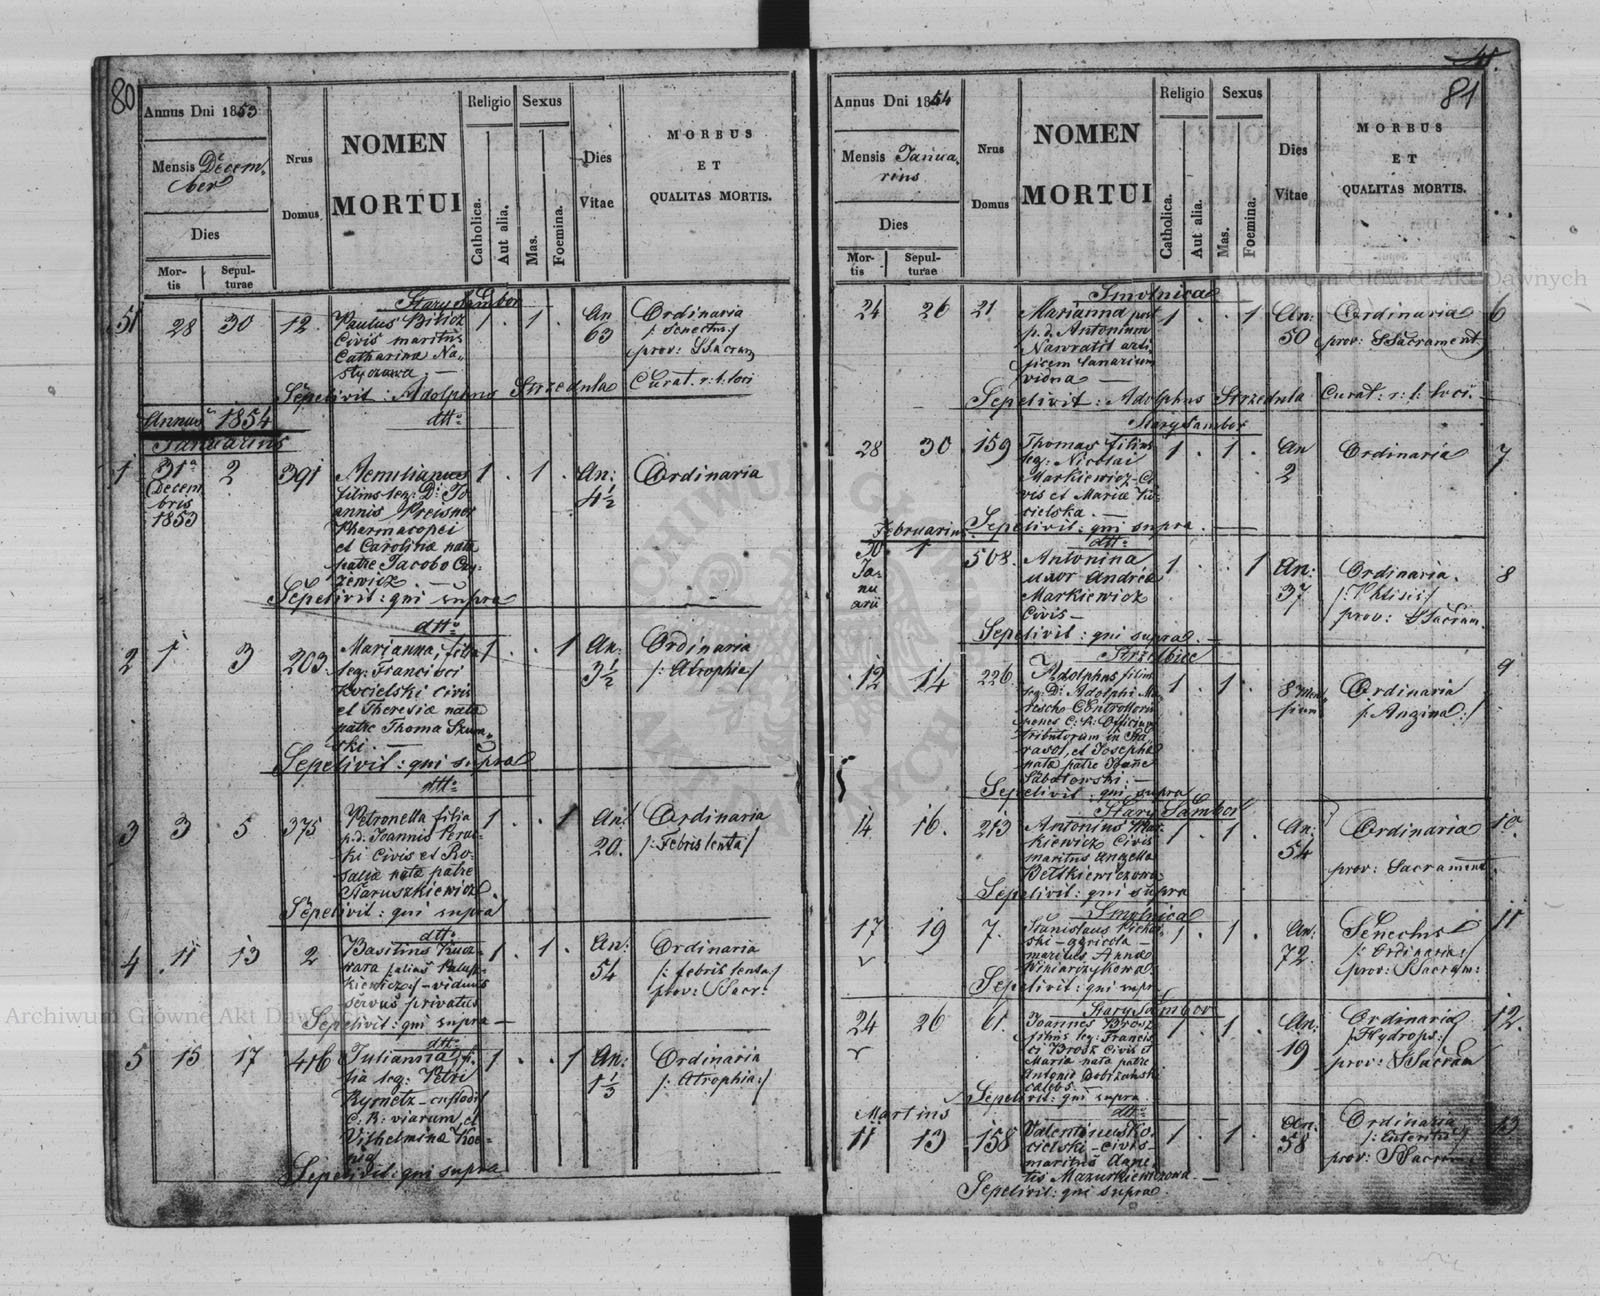 80
Annus Dni 1853
Mensis Decem-
ber
Dies
Mor-
tis
Sepul-
turae
Nrus
Domus
NOMEN
MORTUI
Religio
Catholica.
Aut alia.
Sexus
Mas.
Foemina.
Dies
Vitae
MORBUS
ET
QUALITAS MORTIS.
Stary Sambor
51 28 30 12. Paulus 1 . 1 . An Ordinaria
Civis maritus 63 /: Senectus :/
Catharina Na- prov: SSacram
styczowa. —
Sepelivit: Adolphus Strzednla Curat. r: l: loci
Annus 1854
dtto
Januarius
1 31a 2 391 Aemilianus 1 . 1 . An: Ordinaria
Decem filius leg: D: Jo- 4½
bris annis Preisner
1853 Pharmacopei
et Carolina nata
patre Jacobo
Sepelivit: qui supra
dtto
2 1 3 203. Marianna, filia 1 . . 1 An: Ordinaria
leg: Francisci 3½ /: Atrophia :/
Kocielski civis
et Theresia nata
patre Thoma Szum-
ski. —
Sepelivit: qui supra
dtto
3 3 5 375 Petronella filia 1 . . 1 An: Ordinaria
p.d. Joannis 20. /: Febris lenta :/
ki civis et Ro-
salia nata patre
Staruszkiewicz.
Sepelivit: qui supra
dtto
4 11 13 2 Basilius Kucz- 1 . 1 . An: Ordinaria
54 /: febris lenta :/
kiewicz :/ — viduus prov: SSacr:
servus privatus
Sepelivit: qui supra —
dtto
5 15 17 416 Julianna fi- 1 . . 1 An: Ordinaria
lia leg: Petri 1⅓ /: Atrophia :/
Rymetz — custodis
C. R: viarum, et
Vilhelmina
Sepelivit: qui supra
81
Annus Dni 1854
Mensis Janua-
rius
Dies
Mor-
tis
Sepul-
turae
Nrus
Domus
NOMEN
MORTUI
Religio
Catholica.
Aut alia.
Sexus
Mas.
Foemina.
Dies
Vitae
MORBUS
ET
QUALITAS MORTIS.
Smolnica
24 26 21 Marianna post 1 . . 1 An: Ordinaria 6
p.d. Antonium 50 prov: SSacrament.
Nawratil arti-
ficem lanarium
vidua —
Sepelivit: Adolphus Strzednla Curat: r: l: loci.
Stary Sambor
28 30 159 Thomas filius 1 . 1 . An Ordinaria 7
leg: Nicolai 2
Markiewicz Ci-
vis et Maria Ko-
cielska. —
Sepelivit: qui supra. —
Februarius
dtto
30 1 508. Antonina 1 . . 1 An: Ordinaria. 8
Ja- uxor Andrea 37 /: Phtisis :/
nu Markiewicz prov: SSacram.
arii Civis —
Sepelivit: qui supra. —
Strzelbice
12 14 226 Adolphus filius 1 . 1 . 8 Ordinaria 9
leg: D: Adolphi /: Angina :/
penes C: R: Officium
tributorum in
et Josepha
nata patre
Sepelivit: qui supra
Stary Sambor
14 16. 213 Antonius Mar- 1 . 1 . An: Ordinaria 10.
kiewicz Civis 54
maritus Angella prov: Sacrament.
Sepelivit: qui supra
Smolnica
17 19 7. Stanislaus 1 . 1 . An: Senectus 11
ski — agricola — 72. /: Ordinaria :/
maritus Anna prov: SSacram:
Winiarczykowa
Sepelivit: qui supr
Stary Sambor
24 26 61. Joannes Brosz 1 . 1 . An: Ordinaria 12.
filius leg: Francis- 19 /: Hydrops :/
ci Brosz civis et prov: SSacram
Maria nata patre
Antonio
caelebs. —
Sepelivit: qui supra.
Martius
dtto
11 13 158 Valentinus Ko- 1 . 1 . An. Ordinaria 13
cielski — civis — 58 /: Enteritis :/
maritus Agne- prov: SSacram
tis Mazurkiewiczowa. —
Sepelivit: qui supra.
Archiwum Główne Akt Dawnych
Archiwum Główne Akt Dawnych